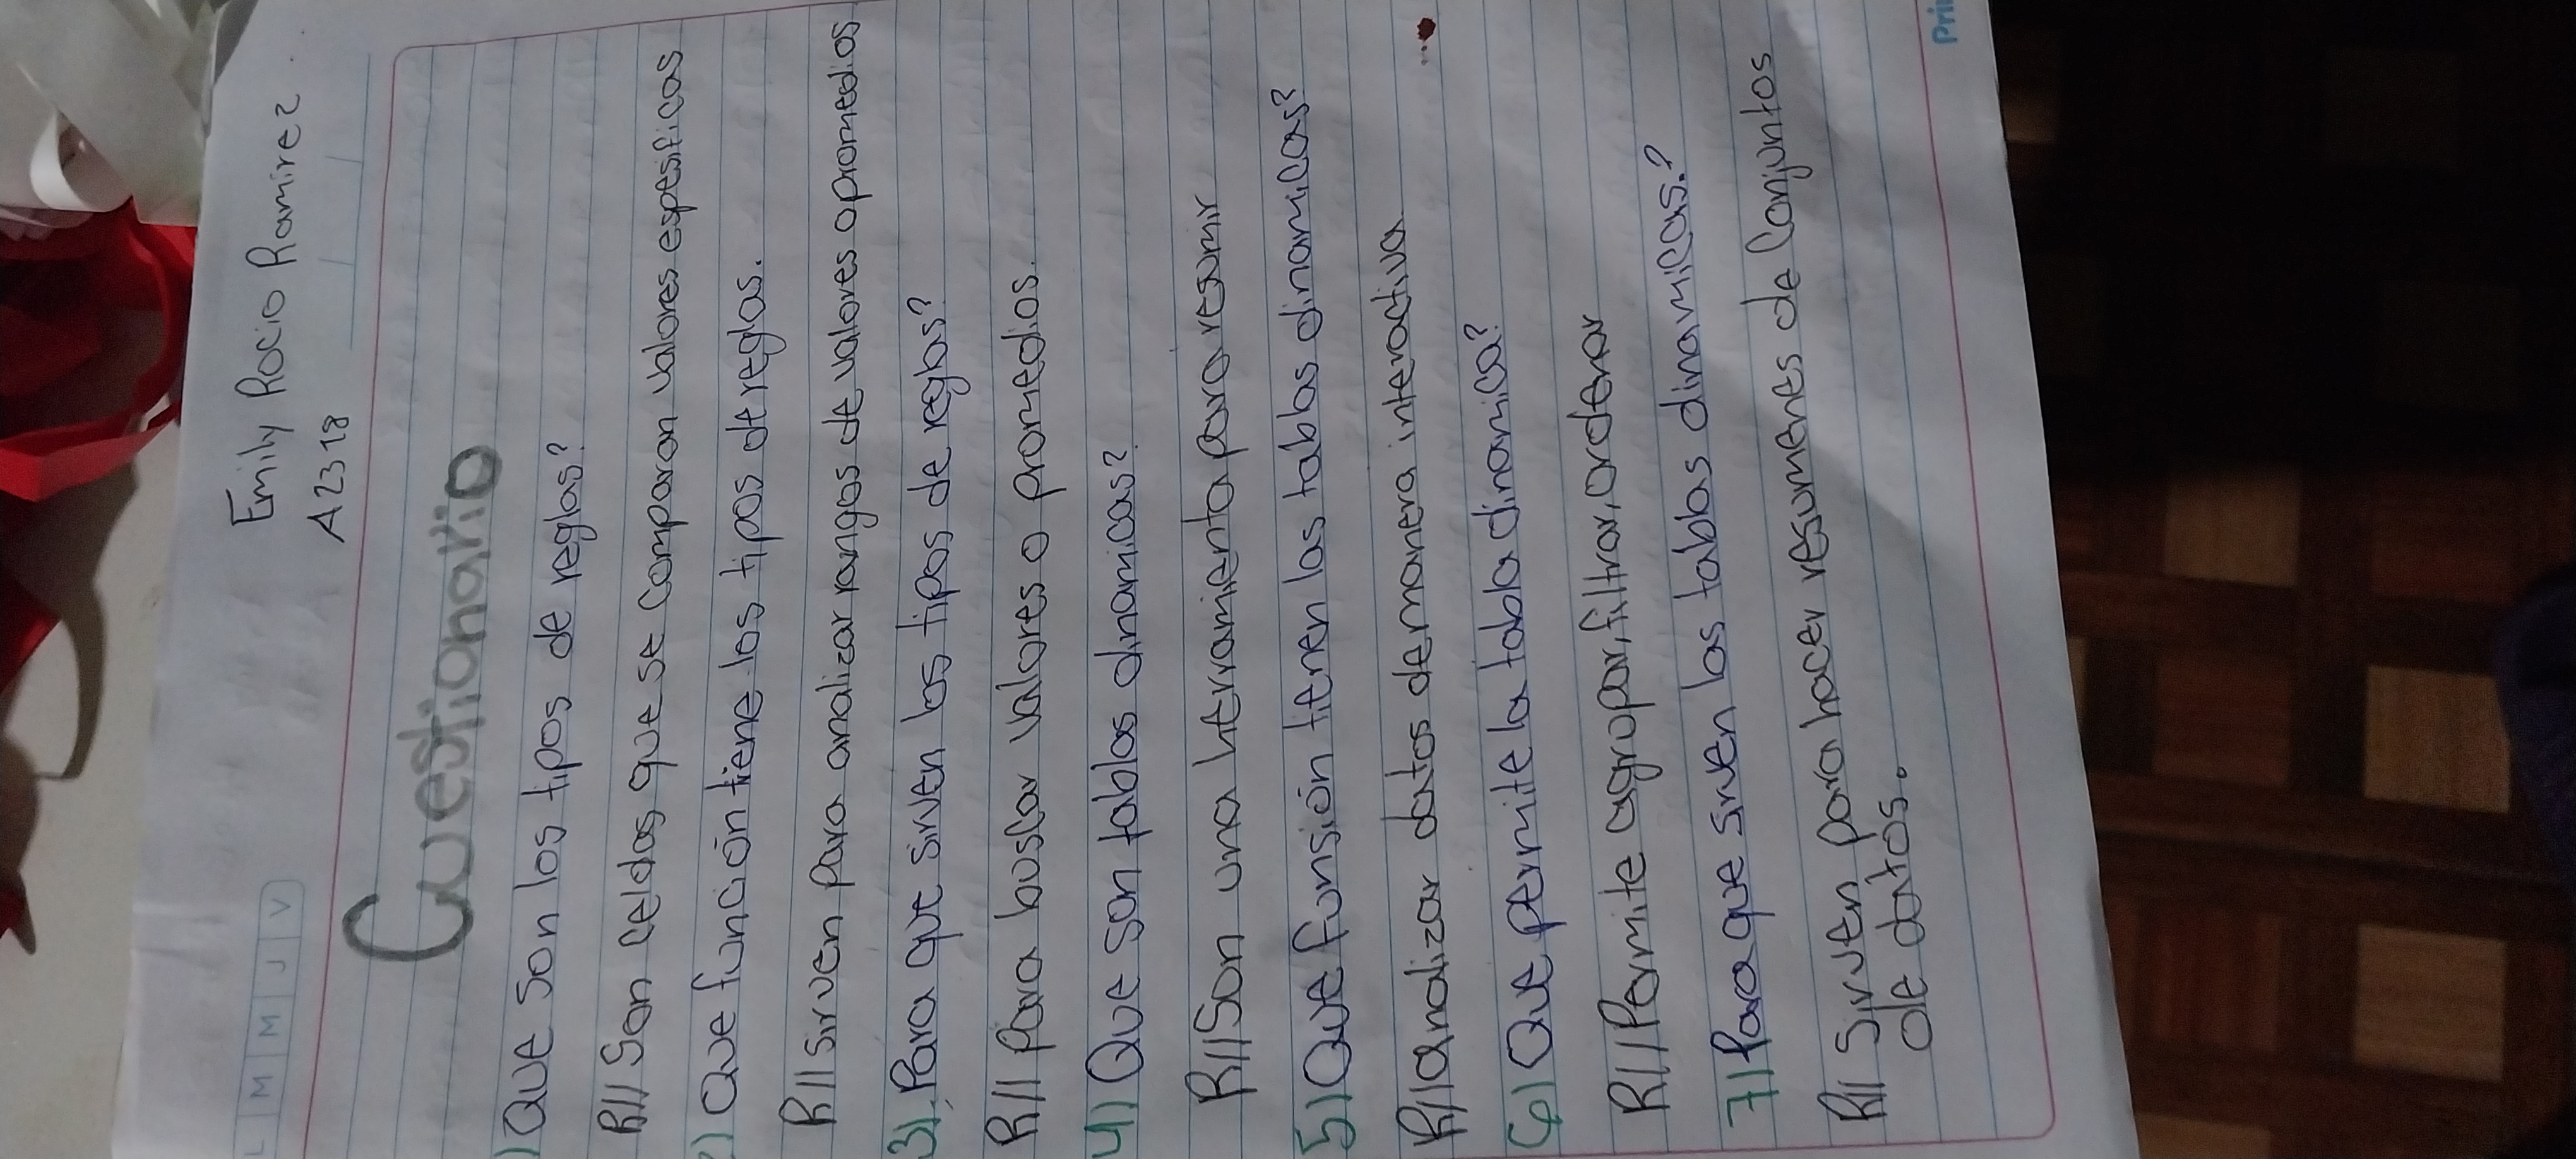 Emily Rocio Ramirez
A2318
L M M J V
Cuestionario
1) Que son los tipos de reglas?
R/// Son celdas que se comparan valores espesificas
2) Que función tiene los tipos de reglas.
R// sirven para analizar rangos de valores o promedios
3) Para que sirven los tipos de reglas?
R/// Para buslar valores o promedios.
4) Que son tablas dinamicas?
R// Son una herramienta para resumir
5) Que funsión tienen las tablas dinamicas?
R// Analizar datos de manera interactiva
6) Que permite la tabla dinamica?
R/// Permite agrupar, filtrar, ordenar
7) Para que sirven las tablas dinamicas.?
R// Sirven para hacer resumenes de Conjuntos
de datos.